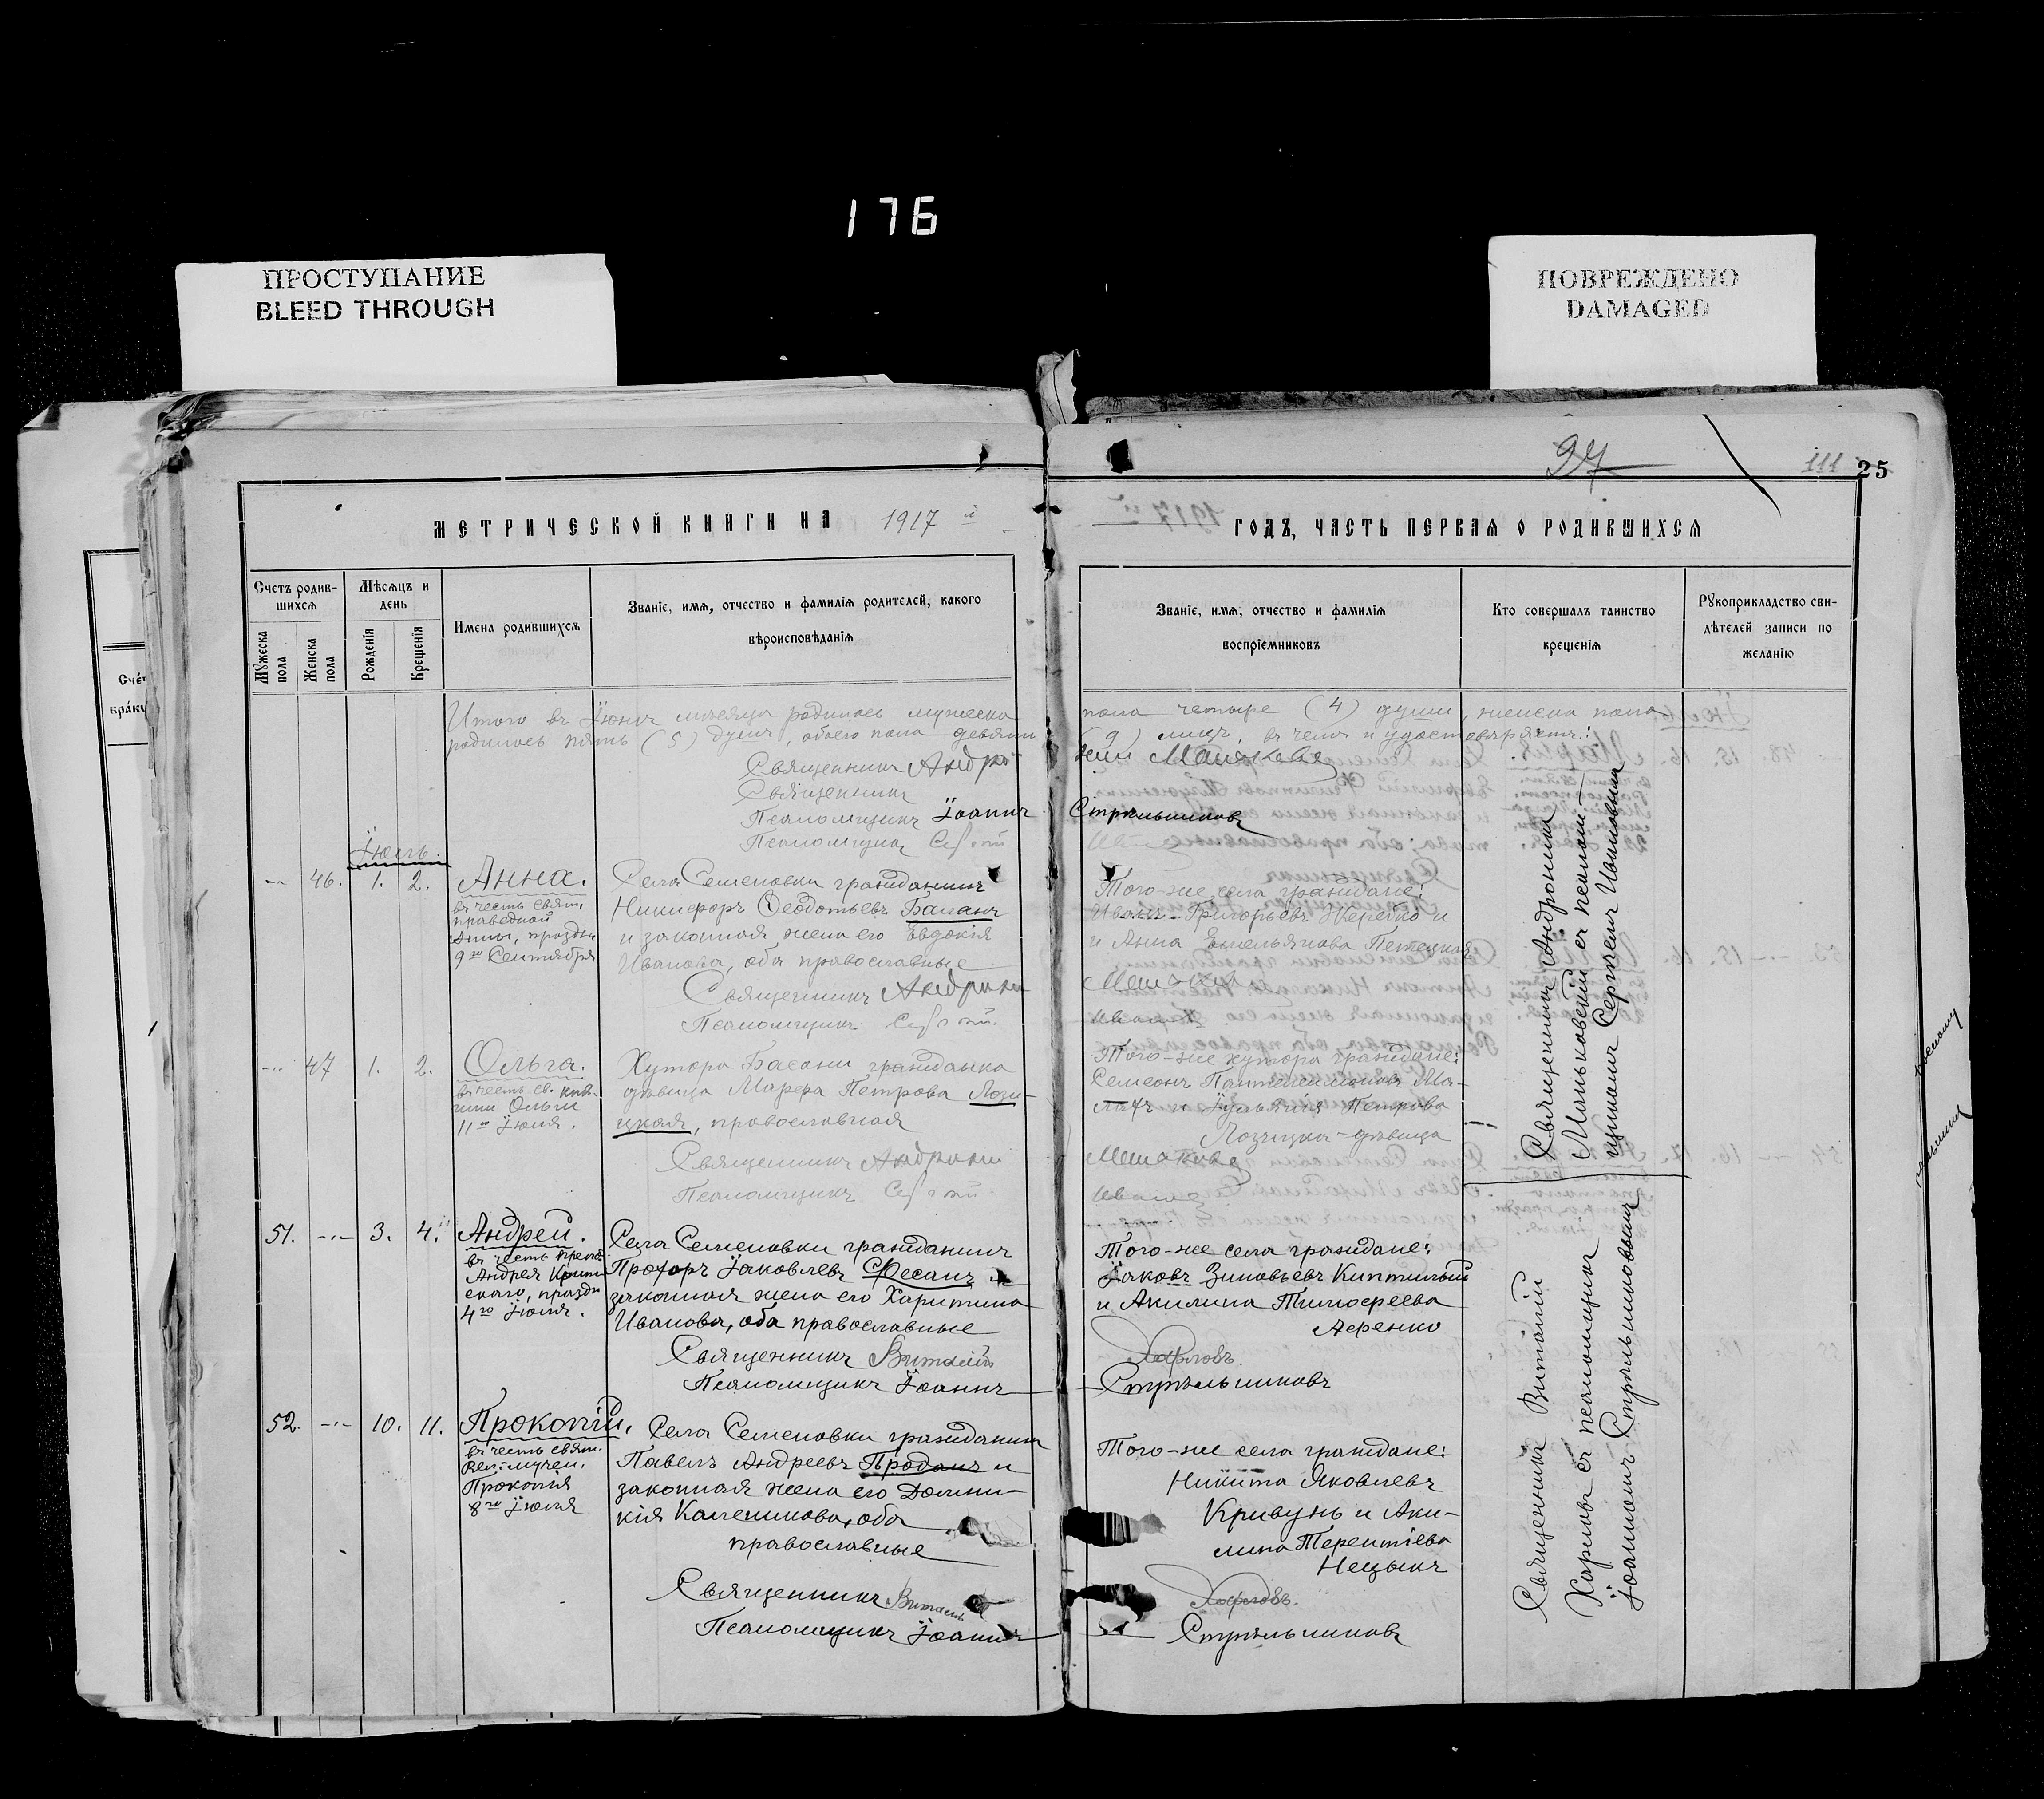 176
ПРОСТУПАНИЕ
BLEED THROUGH
ПОВРЕЖДЕНО
DAMAGED
111 25
МЕТРИЧЕСКОЙ КНИГИ НА 1917 й
ГОДЪ, ЧАСТЬ ПЕРВАЯ О РОДИВШИХСЯ
Счетъ родив-
шихся
Мѣсяцъ и
день
Мужеска
пола
Женска
пола
Рожденія
Крещенія
Имена родившихся
Званіе, имя, отчество и фамилія родителей, какого
вѣроисповѣданія
Званіе, имя, отчество и фамилія
воспріемниковъ
Кто совершалъ таинство
крещенія
Рукоприкладство сви-
дѣтелей записи по
желанію
Итого въ Іюнѣ мѣсяцѣ родилось мужеска
пола четыре (4) души, женска пола
родилось пять (5) душъ, обоего пола девять
(9) лицъ, въ чемъ и удостовѣряемъ:
Священникъ
Священникъ
Псаломщикъ Іоаннъ Стрѣльниковъ
Псаломщикъ
Іюль.
46. 1. 2. Анна.
въ честь свят.
праведной
Анны, праздн
9го Сентября
Села Семеновки гражданинъ
Никифоръ Ѳеодотьевъ Баланъ
и законная жена его Евдокія
Иванова, оба православные
Священникъ
Псаломщикъ
Того-же села граждане:
Иванъ Григорьевъ Жеребко и
и Анна Емельянова Петецкая
47 1. 2. Ольга.
въ честь св. кня-
гини Ольги
11го Іюля.
Хутора Басани гражданка
дѣвица Марфа Петрова Лози-
цкая, православная
Священникъ
Псаломщикъ
Того-же хутора граждане:
Семеонъ Пантелеимоновъ
Петрова
Лозицка-дѣвица
51. 3. 4. Андрей.
въ честь преп.
Андрея Крит-
скаго, праздн
4го Іюля.
Села Семеновки гражданинъ
Прохоръ Іаковлевъ Фесанъ и
законная жена его Харитина
Иванова, оба православные
Священникъ Виталій
Псаломщикъ Іоаннъ
Того-же села граждане:
Іаковъ Зиновьевъ Киптилый
и Акилина Тимофеева
Аеренко
Стрѣльниковъ
52. 10. 11. Прокопій.
въ честь свят.
Вел.-мучен.
Прокопія
8го Іюля
Села Семеновки гражданинъ
Павелъ Андреевъ Проданъ и
законная жена его Домни-
кія Каленикова, оба
православные
Священникъ Виталій
Псаломщикъ Іоаннъ
Того-же села граждане:
Никита Яковлевъ
Кривунь и Аки-
лина Терентіева
Нецыкъ
Стрѣльниковъ
Священникъ Андроникъ
съ псалом-
щикомъ Сергѣемъ Ивановымъ
Священникъ Виталій
съ псаломщикомъ
Іоанномъ Стрѣльниковымъ
Счет
браку